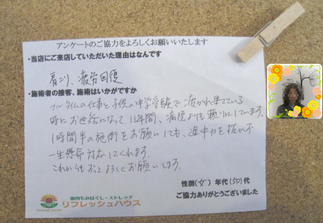 アンケートのご協力をよろしくお願いいたします
・当店にご来店していただいた理由はなんです
肩こり、疲労回復
・施術者の接客、施術はいかがですか
フルタイムの仕事と子供の中学受験で疲れ果てている
時にお世話になって11年間、満足度も
1時間半の施術をお願いしても、途中力を抜かず
一生懸命対応してくれます。
これからもどうぞよろしくお願いします。
性別(女)年代(50)代
ご協力ありがとうございました
筋肉もみほぐし・ストレッチ
リフレッシュハウス